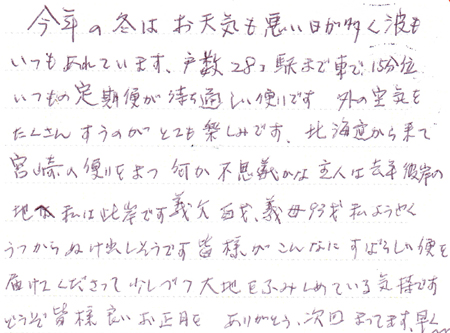 今年の冬はお天気も悪い日が多く波も
いつもあれています、戸数28コ駅まで車で15分位
いつもの定期便が待ち遠しい便りです 外の空気を
たくさんすうのがとても楽しみです、北海道から来て
宮崎の便りをまつ 何か不思議かな 主人は去年彼岸の
地へ 私は此岸です 義父百才、義母93才 私ようやく
うつからぬけ出しそうです 皆様がこんなにすばらしい便を
届けてくださって少しづつ大地をふみしめている気持です
どうぞ皆様良いお正月を ありがとう、次回まってます、早く